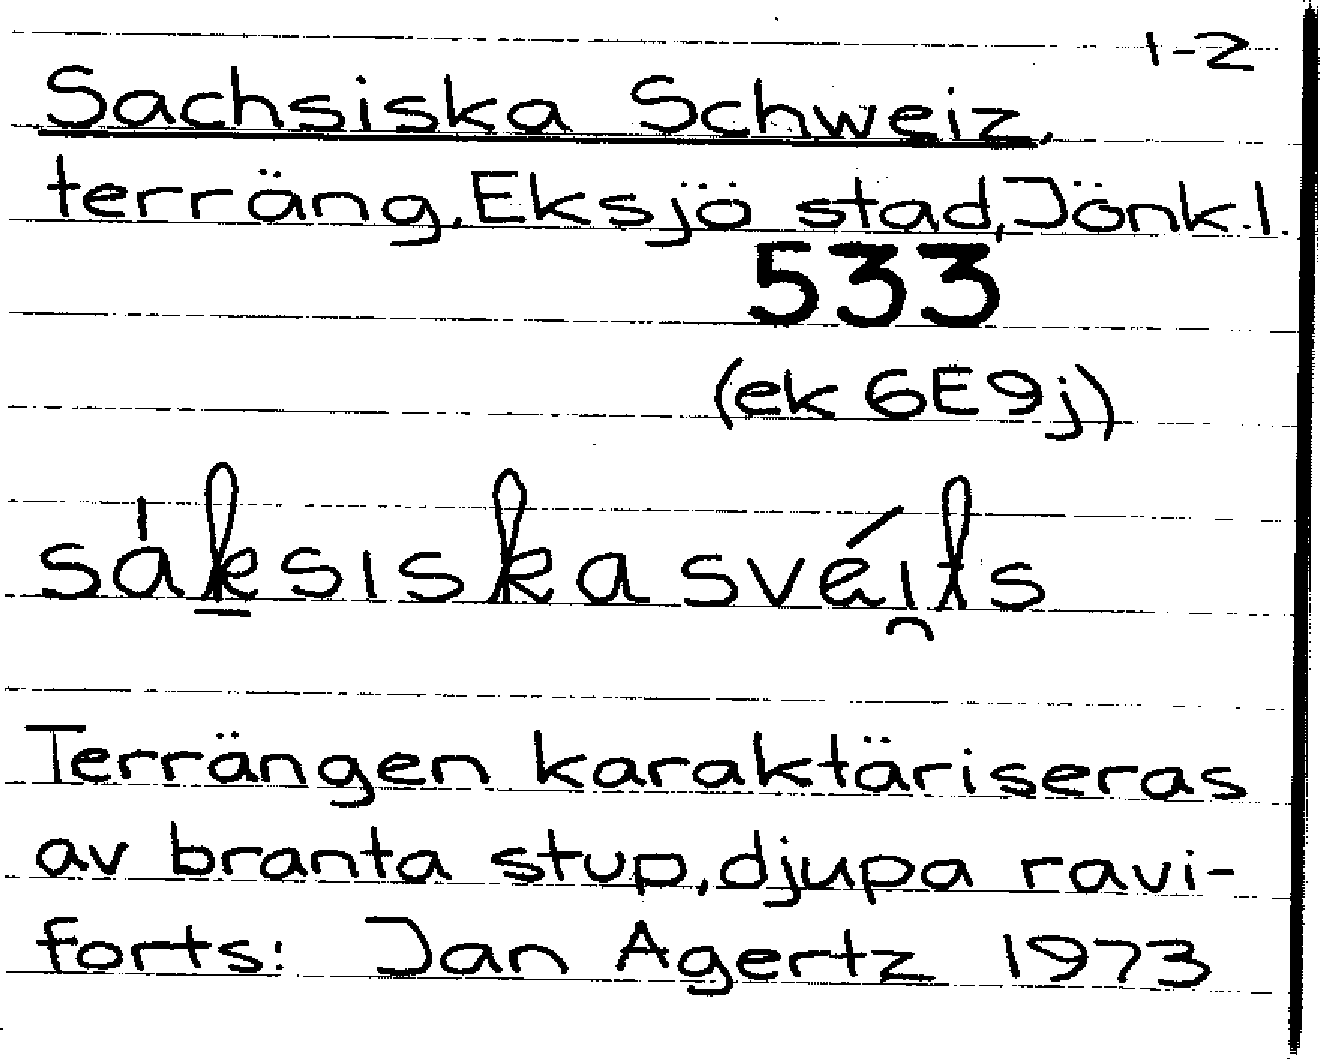 1-2
Sachsiska Schweiz.
terräng. Eksjö stad, Jönk.l.
533
(ek 6E9j)
sáksiska svéi̯ts
Terrängen karaktäriseras
av branta stup, djupa ravi-
forts: Jan Agertz 1973